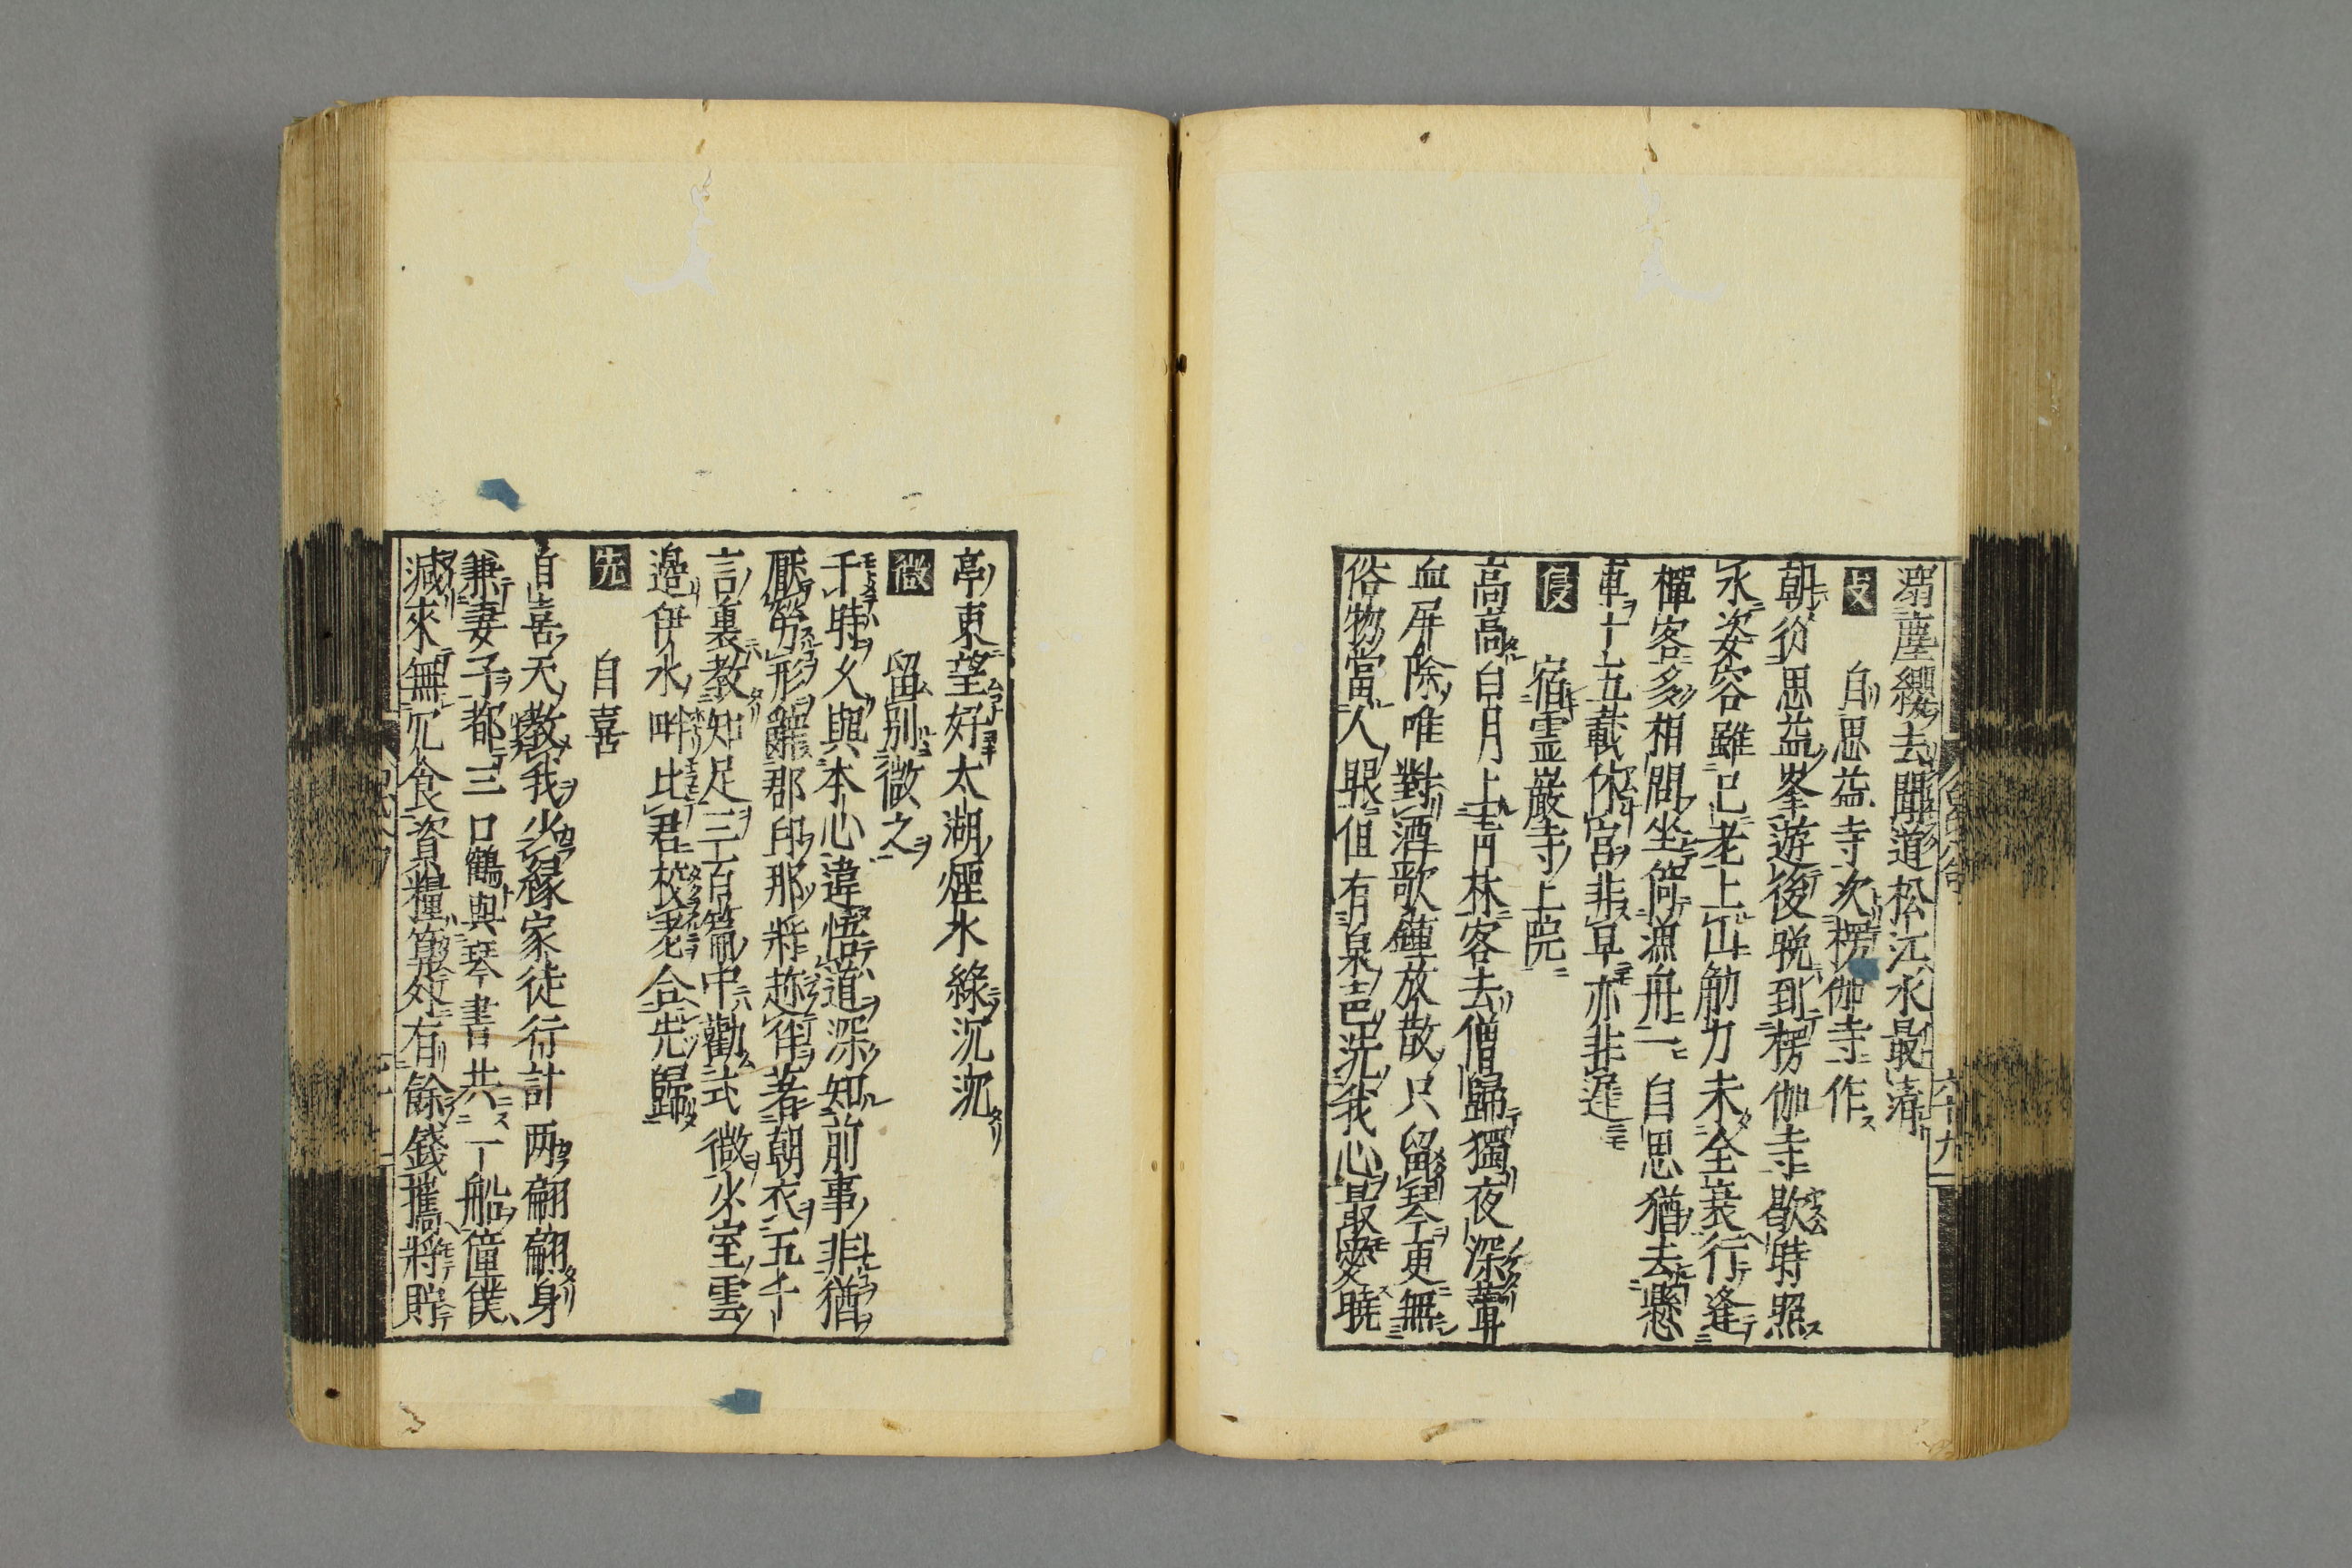 溺塵纓去聞道松江水最清
支 自思益寺次楞伽寺作
朝從思益峯遊後晩到楞伽寺歇時照
水姿容雖已老上山筋力未全衰行逢
禪客多相問坐倚漁舟一自思猶去懸
車十五載休官非早亦非遲
侵 宿霊巌寺上院
高高白月上青林客去僧歸獨夜深葷
血屏除唯對酒歌鐘放散只留琴更無
俗物當人眼但有泉声洗我心最愛曉
亭東望好太湖煙水綠沉沉
微 留別微之
千時久與本心違悟道深知前事非猶
厭勞形辭郡印那將趂伴著朝衣五千
言裏教知足三百篇中勸式微少室雲
邊伊水畔比君校老合先歸
先 自喜
自喜天教我少緣家徒行計两翩翩身
兼妻子都三口鶴與琴書共一船僮僕
減來無冗食資糧算外有餘錢攜將貯
六十九